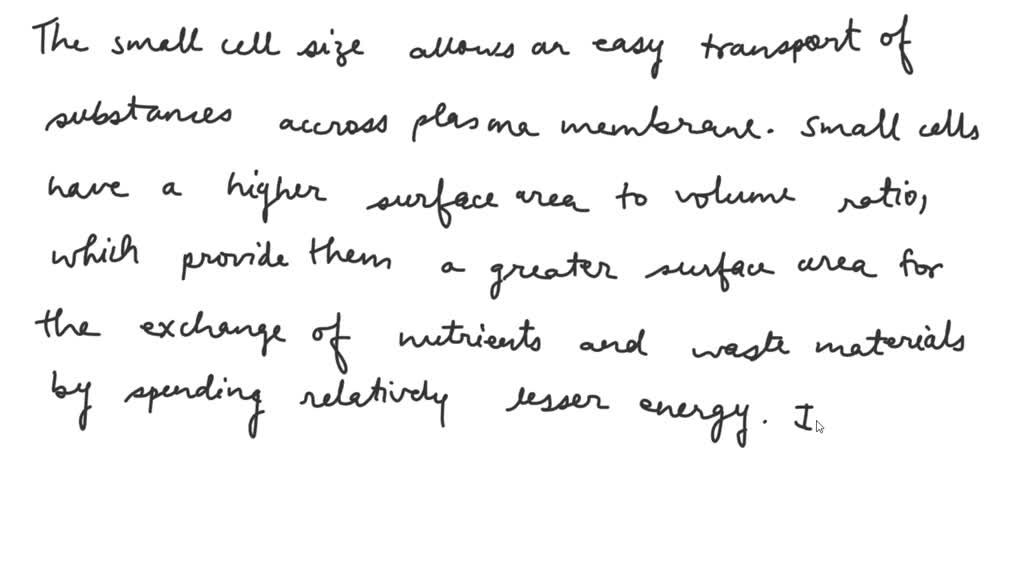 The small cell size allows an easy transport of
substances accross plasma membrane. Small cells
have a higher surface area to volume ratio,
which provide them a greater surface area for
the exchange of nutrients and waste materials
by spending relatively lesser energy. I